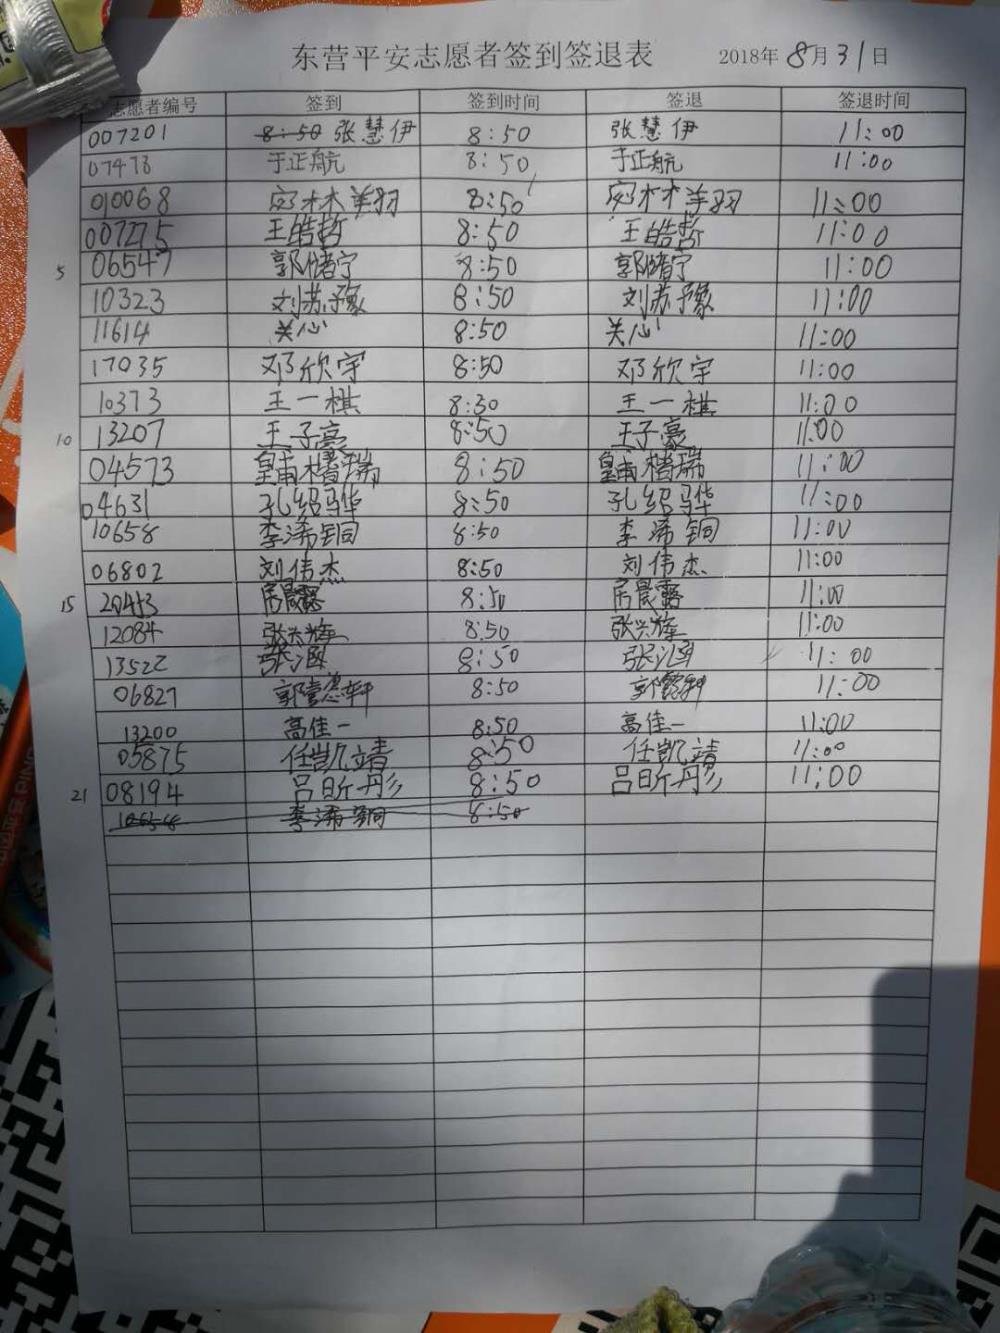 东营平安志愿者签到签退表 2018年 8月31日
志愿者编号 签到 签到时间 签退 签退时间
007201 8:50 张慧伊 8:50 张慧伊 11:00
07478 于正航 8:50 于正航 11:00
010068 8:50 11:00
007275 王皓哲 8:50 王皓哲 11:00
5 06547 郭绪宁 8:50 郭绪宁 11:00
10323 刘苏豫 8:50 刘苏豫 11:00
11614 关心 8:50 关心 11:00
17035 邓欣宇 8:50 邓欣宇 11:00
10373 王一棋 8:30 王一棋 11:00
10 13207 王子豪 8:50 王子豪 11:00
04573 皇甫楷瑞 8:50 皇甫楷瑞 11:00
04631 孔绍骅 8:50 孔绍骅 11:00
10658 李浠铜 8:50 李浠铜 11:00
06802 刘伟杰 8:50 刘伟杰 11:00
15 20413 房晨露 8:50 房晨露 11:00
12084 张兴雄 8:50 张兴雄 11:00
13522 张涵 8:50 张涵 11:00
06827 郭懿轩 8:50 11:00
13200 高佳一 8:50 高佳一 11:00
05875 任凯靖 8:50 任凯靖 11:00
21 08194 吕昕彤 8:50 吕昕彤 11:00
10658 李浠铜 8:50